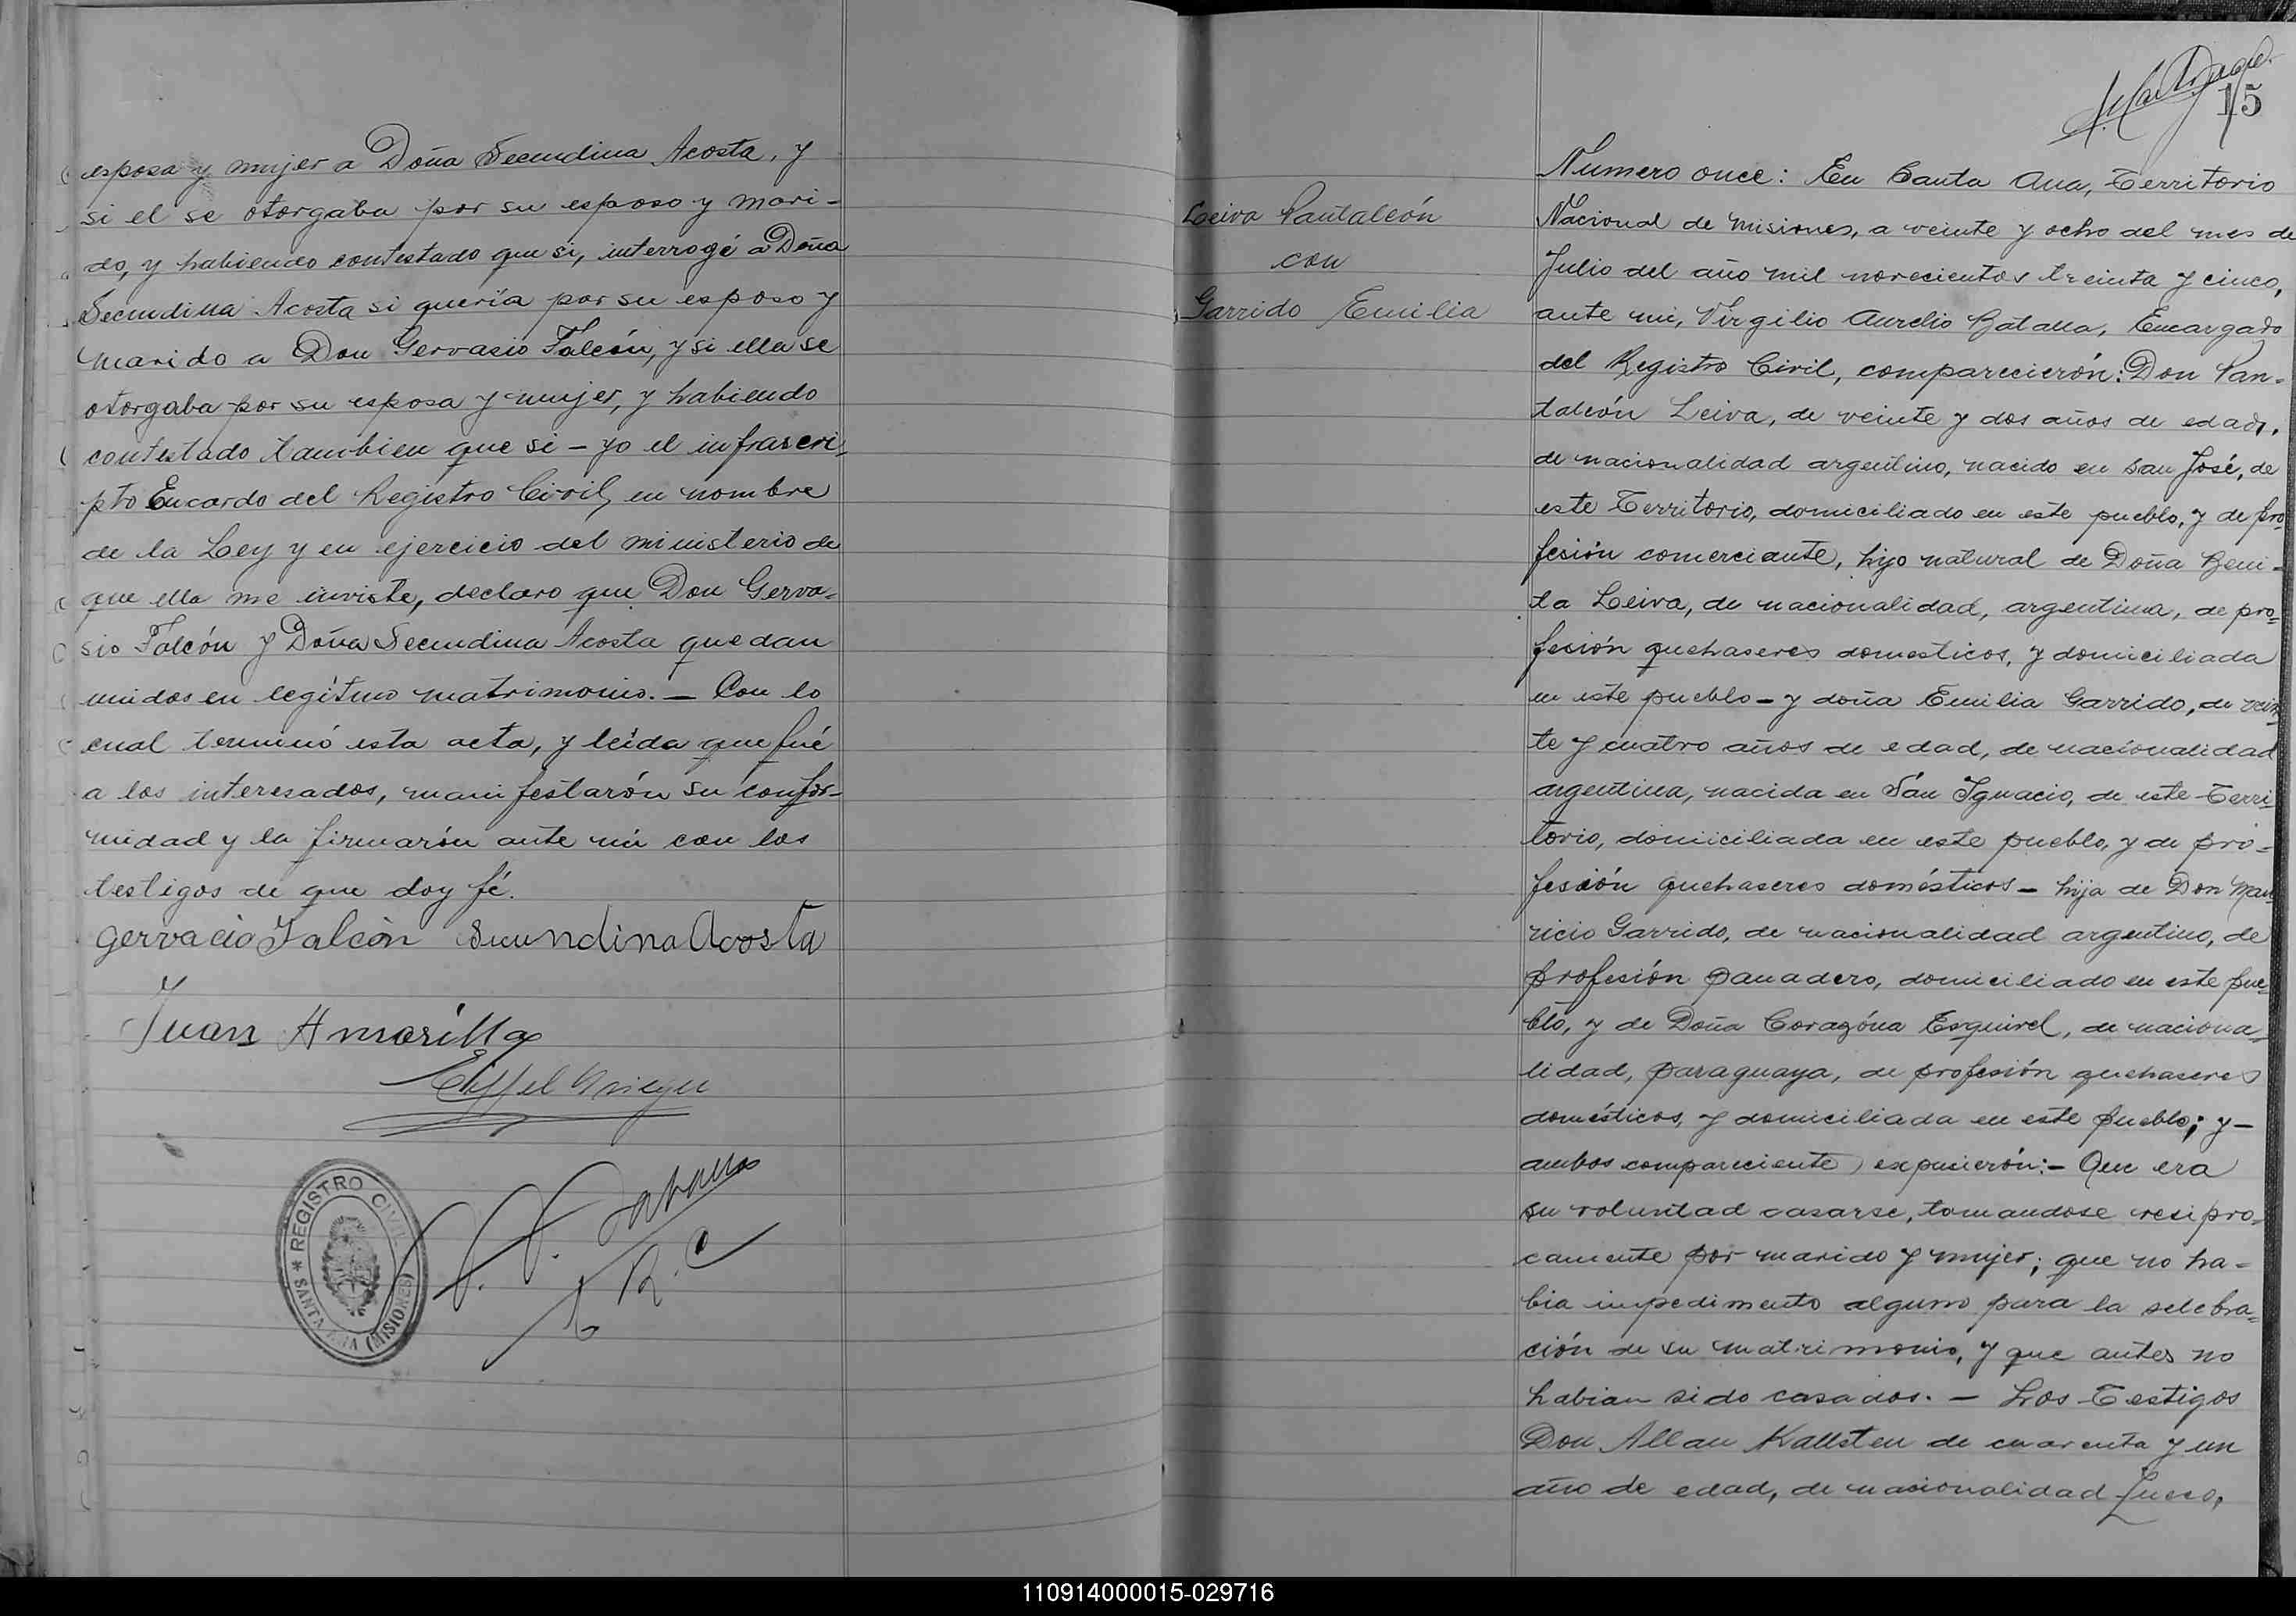 esposa y mujer a Doña Secundina Acosta, y
si el se otorgaba por su esposo y mari-
do, y habiendo contestado que si, interrogé a Doña
Secundina Acosta si quería por su esposo y
marido a Don Gervasio Falcón, y si ella se
otorgaba por su esposa y mujer, y habiendo
contestado tambien que si - yo el infrascri-
pto Encardo del Registro Civil, en nombre
de la Ley y en ejercicio del ministerio de
que ella me inviste, declaro que Don Gerva-
sio Falcón y Doña Secundina Acosta quedan
unidos en legítimo matrimonio. - Con lo
cual terminó esta acta, y leida que fué
a los interesados, manifestarón su confor-
midad y la firmarón ante mi con los
testigos de que doy fé.
gervacio Falcón Secundina Acosta
Juan Amarilla
REGISTRO CIVIL
SANTA ANA (MISIONES)
15
Leiva Pantaleón
con
Garrido Emilia
Numero once: En Santa Ana, Territorio
Nacional de Misiones, a veinte y ocho del mes de
Julio del año mil novecientos treinta y cinco,
ante mi, Virgilio Aurelio Encargado
del Registro Civil, comparecierón: Don Pan-
taleón Leiva, de veinte y dos años de edad,
de nacionalidad argentino, nacido en San José, de
este Territorio, domiciliado en este pueblo, y de pro-
fesión comerciante, hijo natural de Doña Beni-
ta Leiva, de nacionalidad, argentina, de pro-
fesión quehaseres domesticos, y domiciliada
en este pueblo - y doña Emilia Garrido, de vein-
te y cuatro años de edad, de nacionalidad
argentina, nacida en Sán Ignacio, de este Terri-
torio, domiciliada en este pueblo, y de pro-
fesión quehaseres domésticos - hija de Don Mau-
ricio Garrido, de nacionalidad argentino, de
profesión panadero, domiciliado en este pue-
blo, y de Doña Corazóna Esquivel, de naciona-
lidad, paraguaya, de profesión quehaseres
domésticos, y domiciliada en este pueblo; y -
ambos compareciente, expusierón: - Que era
su voluntad casarse, tomandose resipro-
camente por marido y mujer; que no ha-
bia impedimento alguno para la selebra-
ción de su matrimonio, y que antes no
habian sido casados. - Los Testigos
Don Allan Kallsten de cuarenta y un
año de edad, de nacionalidad Sueco,
110914000015-029716